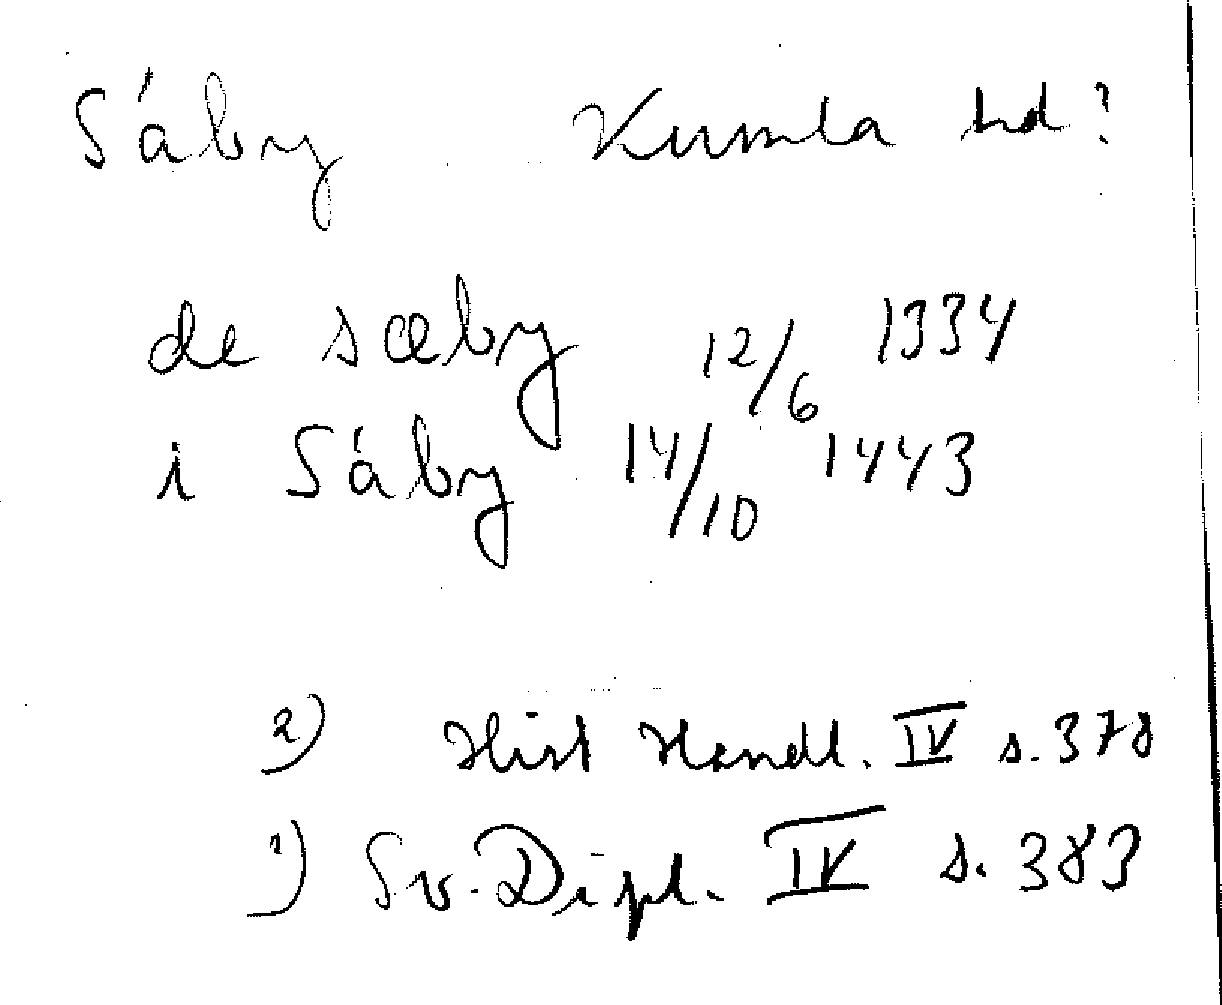 Sáby Kumla hd?
de sæby 12/6 1334
i Sáby 14/10 1443
2) Hist Handl. IV s. 378
1) Sv. Dipl. IV s. 383